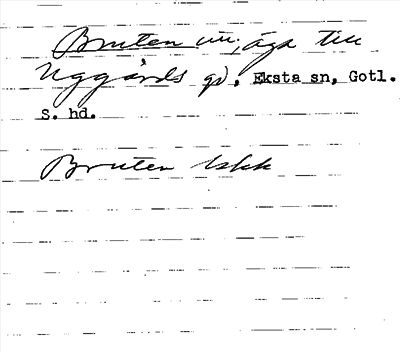 Bruten äni, äga till
Uggårds gd, Eksta sn, Gotl.
S. hd.
Bruten Iskk